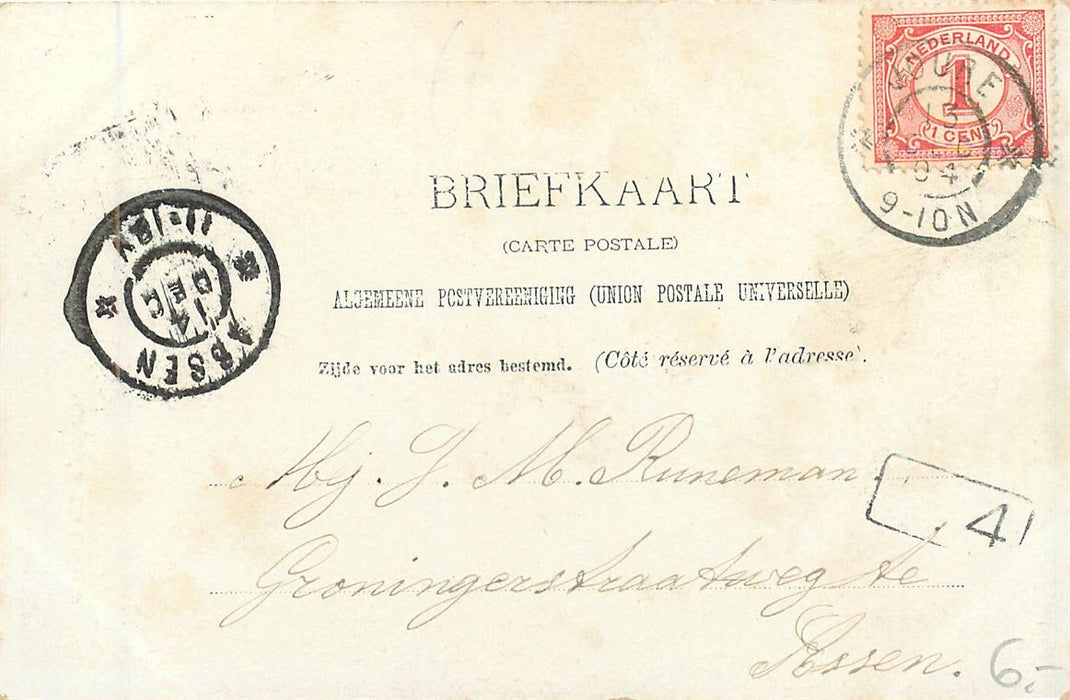 NEDERLAND
1
1 CENT
JOURE
13
DEC
04
9-10N
BRIEFKAART
(CARTE POSTALE)
ALGEMEENE POSTVEREENIGING (UNION POSTALE UNIVERSELLE)
Zijde voor het adres bestemd. (Côté réservé à l'adresse).
ASSEN
14
DEC
11-12V
Mej. J. M. Runeman.
Groningerstraatweg te
Assen.
4
6.-